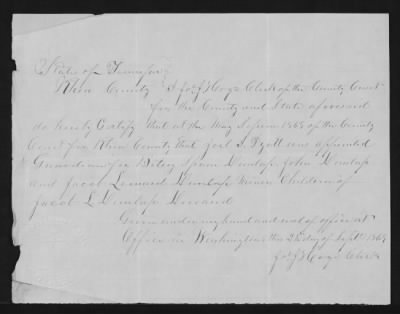 State of Tennessee
Rhea County I Jos J Hoyl Clerk of the County Court
for the County and State aforesaid
do hereby Certify that at the May Term 1865 of the County
Court for Rhea County that Joel S. Pyott was appointed
Guardian for Betsy Dunlap John Dunlap
and Jacob Leonard Dunlap minor Children of
Jacob L Dunlap Deceased
Given under my hand and seal of office at
Office in Washington this 25 day of Sept 1865
Clerk